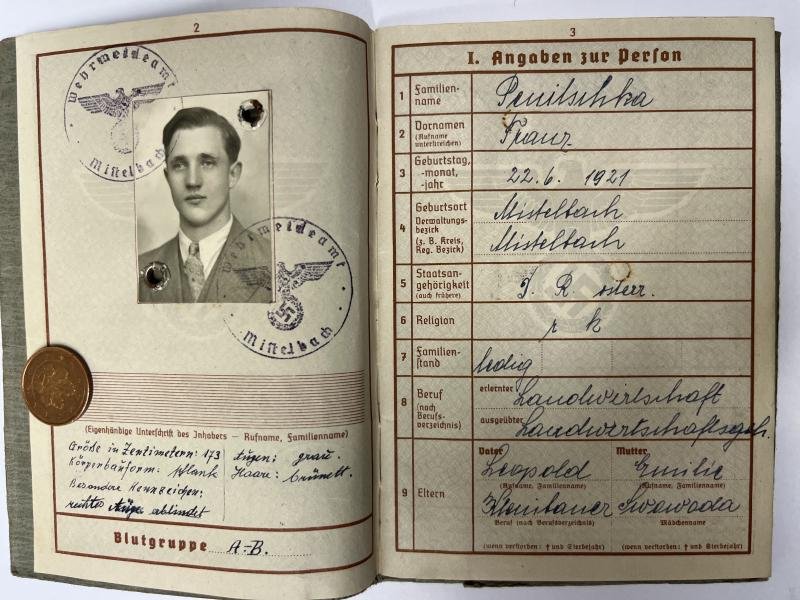 2
Wehrmeldeamt
Mistelbach
Wehrmeldeamt
Mistelbach
(Eigenhändige Unterschrift des Inhabers – Rufname, Familienname)
Größe in Zentimetern: 173 Augen: grau.
Körperbauform: schlank Haare: brünett.
Besondere Kennzeichen:
rechtes Auge erblindet
Blutgruppe A-B.
3
I. Angaben zur Person
1 Familien-
name
Penitschka
2 Vornamen
(Rufname
unterstreichen)
Franz
3 Geburtstag,
-monat,
-jahr
22. 6. 1921
4 Geburtsort
Verwaltungs-
bezirk
(z. B. Kreis,
Reg. Bezirk)
Mistelbach
Mistelbach
5 Staatsan-
gehörigkeit
(auch frühere)
D. R. österr.
6 Religion
r k
7 Familien-
stand
ledig
8 Beruf
(nach
Berufs-
verzeichnis)
erlernter Landwirtschaft
ausgeübter Landwirtschaftsgeh.
9 Eltern
Vater Mutter
Leopold Emilie
(Rufname, Familienname) (Rufname, Familienname)
Swowoda
Beruf (nach Berufsverzeichnis) Mädchenname
(wenn verstorben: † und Sterbejahr) (wenn verstorben: † und Sterbejahr)